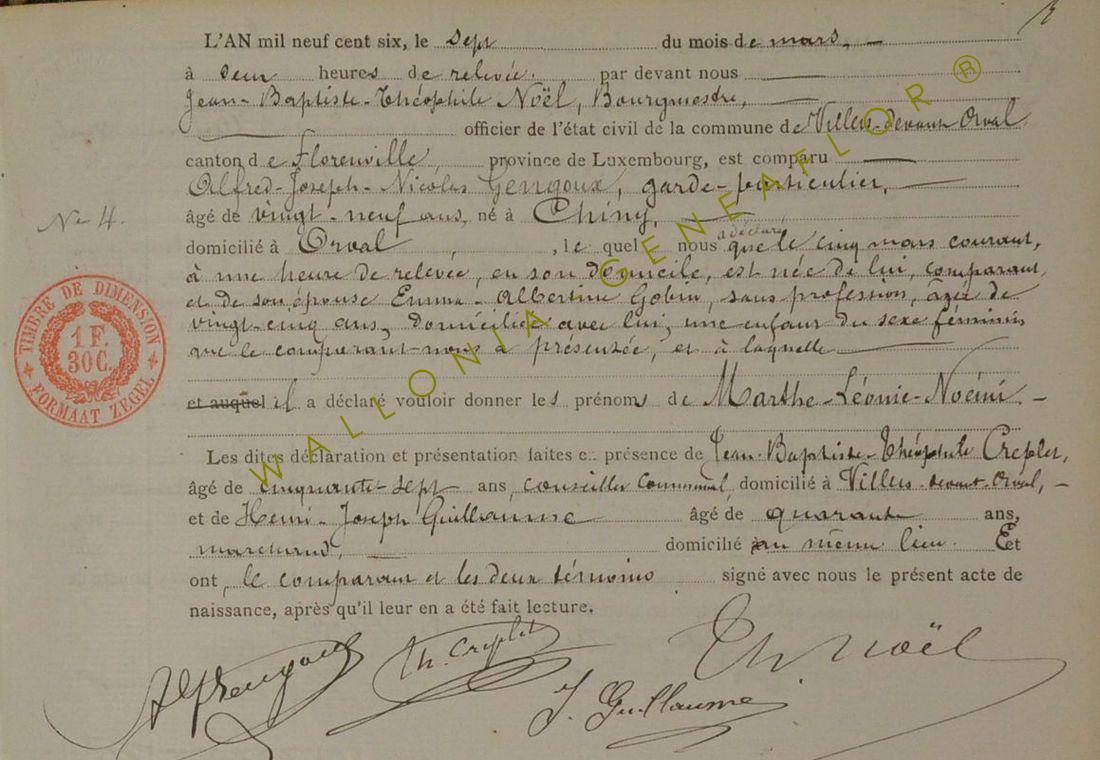 L'AN mil neuf cent six, le sept du mois de mars,
à deux heures de relevée, par devant nous
Jean-Baptiste-Théophile Noël, Bourgmestre,
officier de l'état civil de la commune de Villers-devant Orval
canton de Florenville, province de Luxembourg, est comparu
Alfred-Joseph-Nicolas Gengoux, garde-particulier,
N° 4.
âgé de vingt-neuf ans, né à Chiny,
domicilié à Orval, le quel nous a déclaré que le cinq mars courant,
à une heure de relevée, en son domicile, est née de lui, comparant,
et de son épouse Emma-Albertine Gobin, sans profession, âgée de
vingt-cinq ans, domiciliée avec lui, une enfant du sexe féminin
que le comparant nous a présentée, et à laquelle
et auquel il a déclaré vouloir donner les prénoms de Marthe-Léonie-Noémi.
Les dites déclaration et présentation faites en présence de Jean-Baptiste-Théophile Creplet,
âgé de cinquante-sept ans, conseiller communal, domicilié à Villers-devant-Orval,
et de Henri-Joseph Guillaume âgé de quarante ans,
marchand, domicilié au même lieu. Et
ont, le comparant et les deux témoins signé avec nous le présent acte de
naissance, après qu'il leur en a été fait lecture.
Th. Creplet
Th Noël
J. Guillaume
TIMBRE DE DIMENSION
1 F.
30 C.
FORMAAT ZEGEL
WALLONIA GENEAFLOR ®